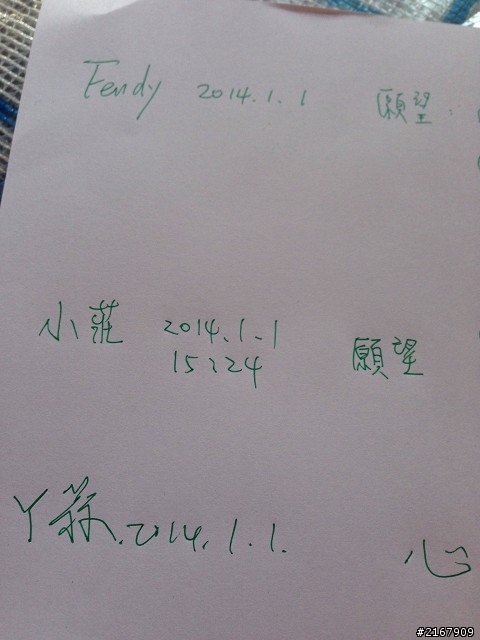 Fendy 2014.1.1 願望:
小莊 2014.1.1 願望
15:24
丫蓀.2014.1.1. 心
#2167909